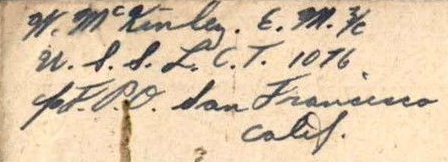 W. McKinley. E. M. 3/c
U. S. S. L. C. T. 1076
c/o F. P. O. San Francisco
Calif.